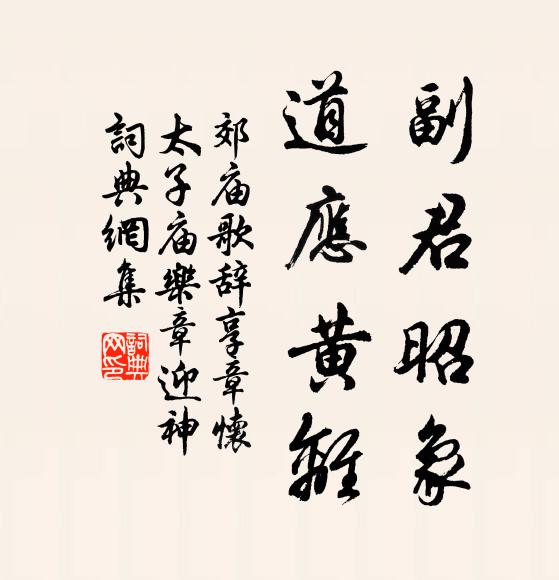 副君昭象
道應黃離
郊庙歌辞享章懷
太子庙樂章迎神
詞典網集
詞典网印